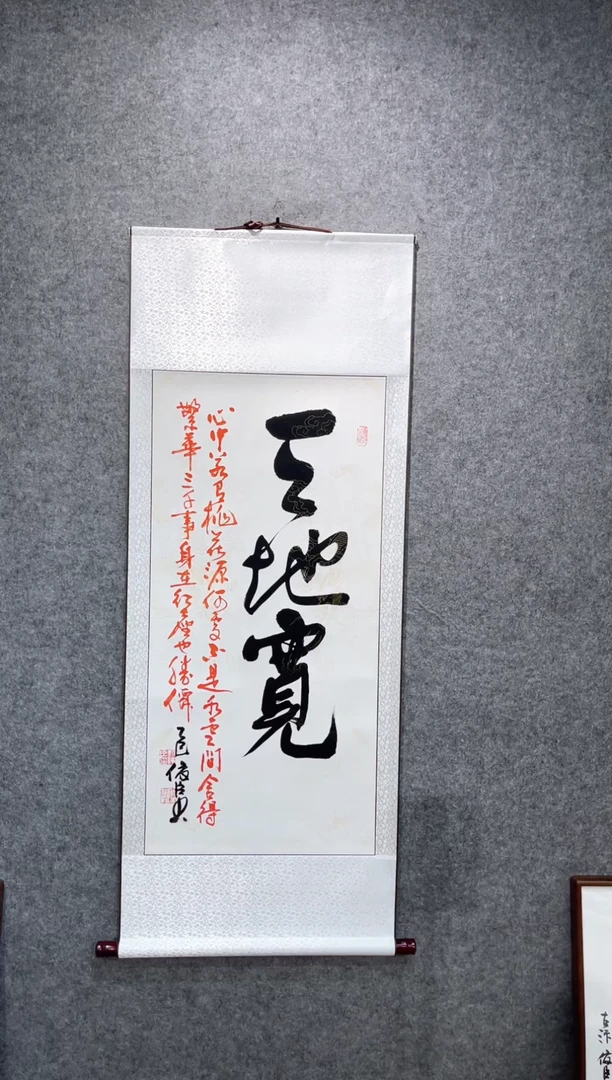 天地寬
心中若有桃花源何處不是水雲間舍得
繁華三千事身在紅塵也勝僊